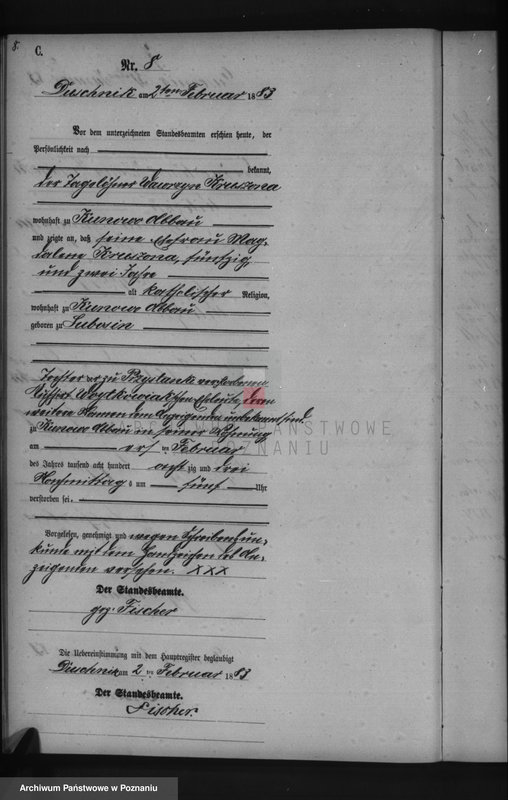 8.
C.
Nr. 8
Duschnik am 2ten Februar 1883
Vor dem unterzeichneten Standesbeamten erschien heute, der
Persönlichkeit nach
bekannt,
der Tagelöhner Wawrzyn Kruszona
wohnhaft zu Kunowo Abbau
und zeigte an, daß seine Ehefrau Mag-
dalene Kruszona, fünfzig
und zwei Jahre
alt katholischer Religion,
wohnhaft zu Kunowo Abbau
geboren zu Lubosin
Tochter der zu Przystanki verstorbenen
Wojtkowiakschen Eheleute, deren
weitere Namen dem Anzeigenden unbekannt sind.
zu Kunowo Abbau in seiner Wohnung
am ersten Februar
des Jahres tausend acht hundert achtzig und drei
Nachmittag s um fünf Uhr
verstorben sei.
Vorgelesen, genehmigt und wegen Schreibensun-
kunde mit dem Handzeichen des An-
zeigenden versehen. XXX
Der Standesbeamte.
gez. Fischer
Die Uebereinstimmung mit dem Hauptregister beglaubigt
Duschnik am 2 ten Februar 1883
Der Standesbeamte.
Fischer.
ARCHIWUM PAŃSTWOWE
W POZNANIU
Archiwum Państwowe w Poznaniu